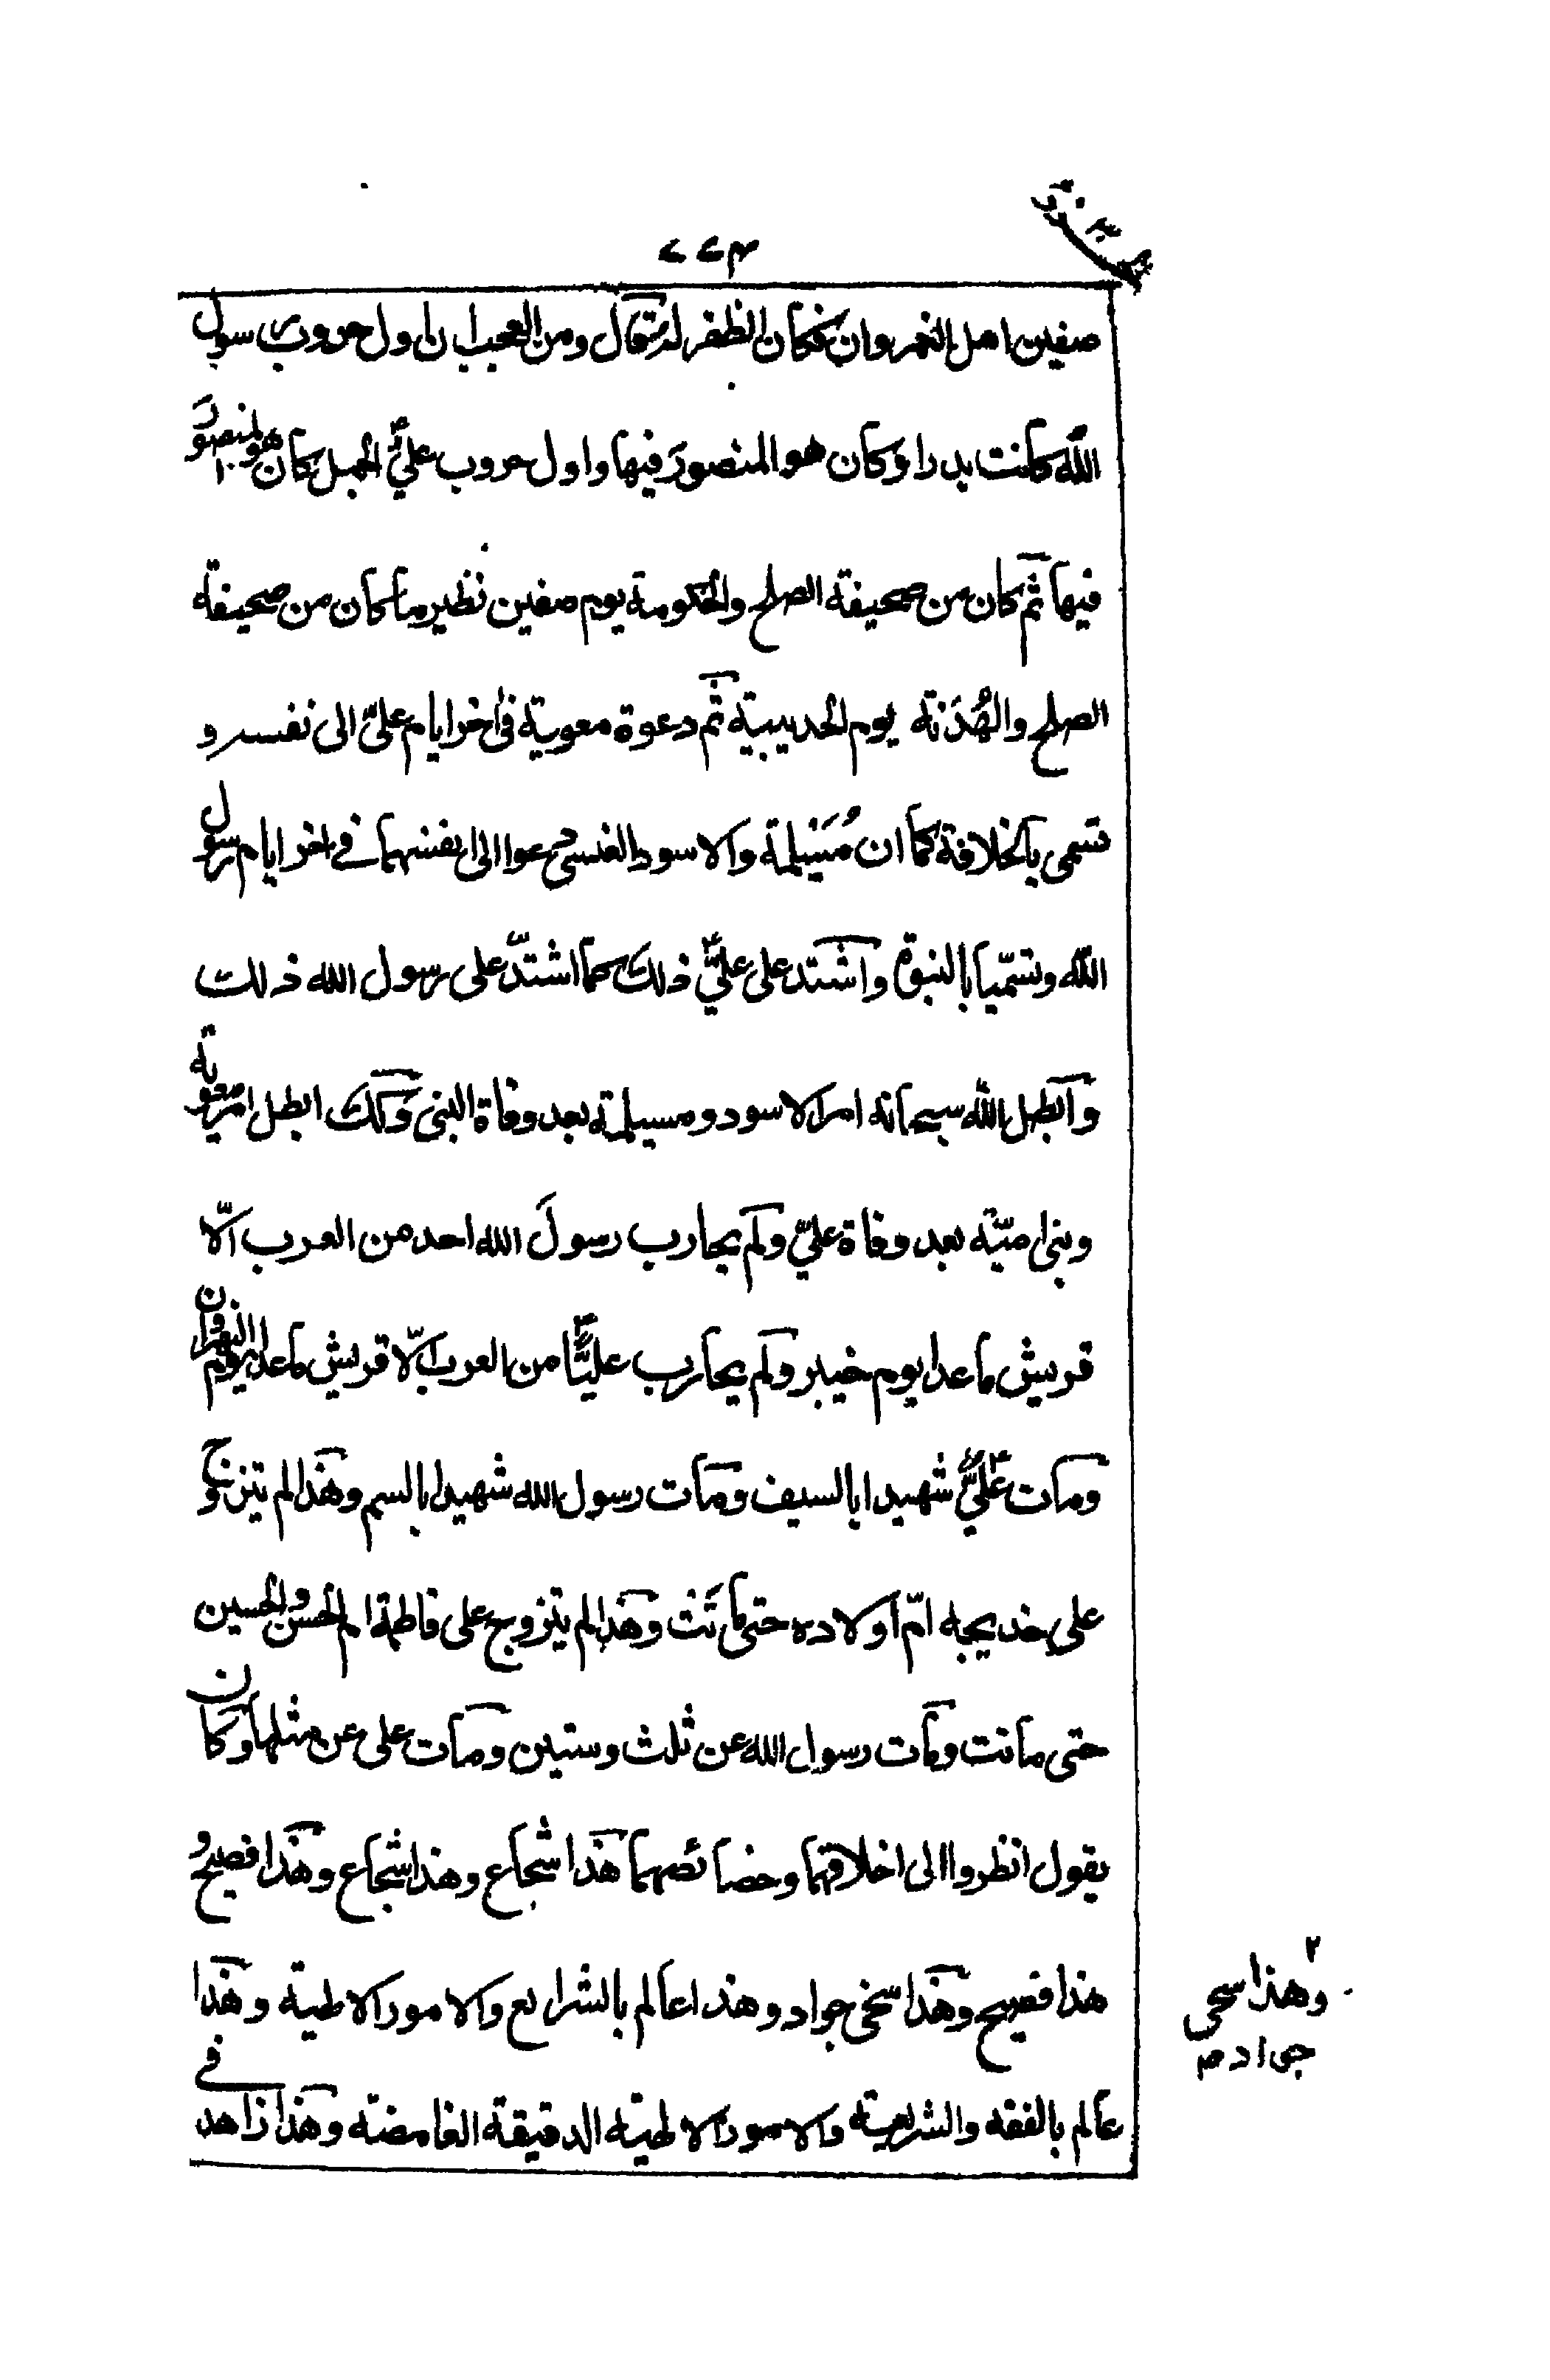 صفين اهل النهروان فكان الظفر له ثم قال ومن العجب ان اول حروب رسول
الله كانت بدرا وكان هو المنصورَ فيها واول حروب عليّ الجمل كان هو المنصورَ
فيها ثم كان من صحيفة الصلح والحكومة يوم صفين نظير ما كان من صحيفة
الصلح والهُدَنة يوم الحديبية ثم دعوة معوية في اخر ايام عليّ الى نفسه و
تسمى بالخلافة كما ان مُسَيْلمة والاسود العنسى دعوا الى انفسهما في اخر ايام رسول
الله وتسمّيا بالنبوة واشتد على عليّ ذلك كما اشتدّ على رسول الله ذلك
وابطل الله سبحانه امر الاسود ومسيلمة بعد وفاة النبى وكك ابطل امر معوية
وبنى اميّة بعد وفاة عليّ ولم يحارب رسولَ الله احد من العرب الّا
قريش ما عدا يوم خيبر ولم يحارب عليًّا من العرب الّا قريش ما عدا يوم النهروان
ومات عليٌّ شهيدا بالسيف ومات رسول الله شهيدا بالسم وهذا لم يتزوج
على خديجه امّ اولاده حتى ماتَت وهذا لم يتزوج على فاطمة ام الحسن والحسين
حتى ماتت ومات رسول الله عن ثلث وستين ومات على عن مثلها وكان
يقول انظروا الى اخلاقهما وخصائصهما هذا شجاع وهذا شجاع وهذا فصيح و
هذا فصيح وهذا سخى جواد وهذا عالم بالشرايع والامور الالهية وهذا
عالم بالفقه والشريعة والامور الالهية الدقيقة الغامضة وهذا زاهد في
وهذا سخى
جواد م